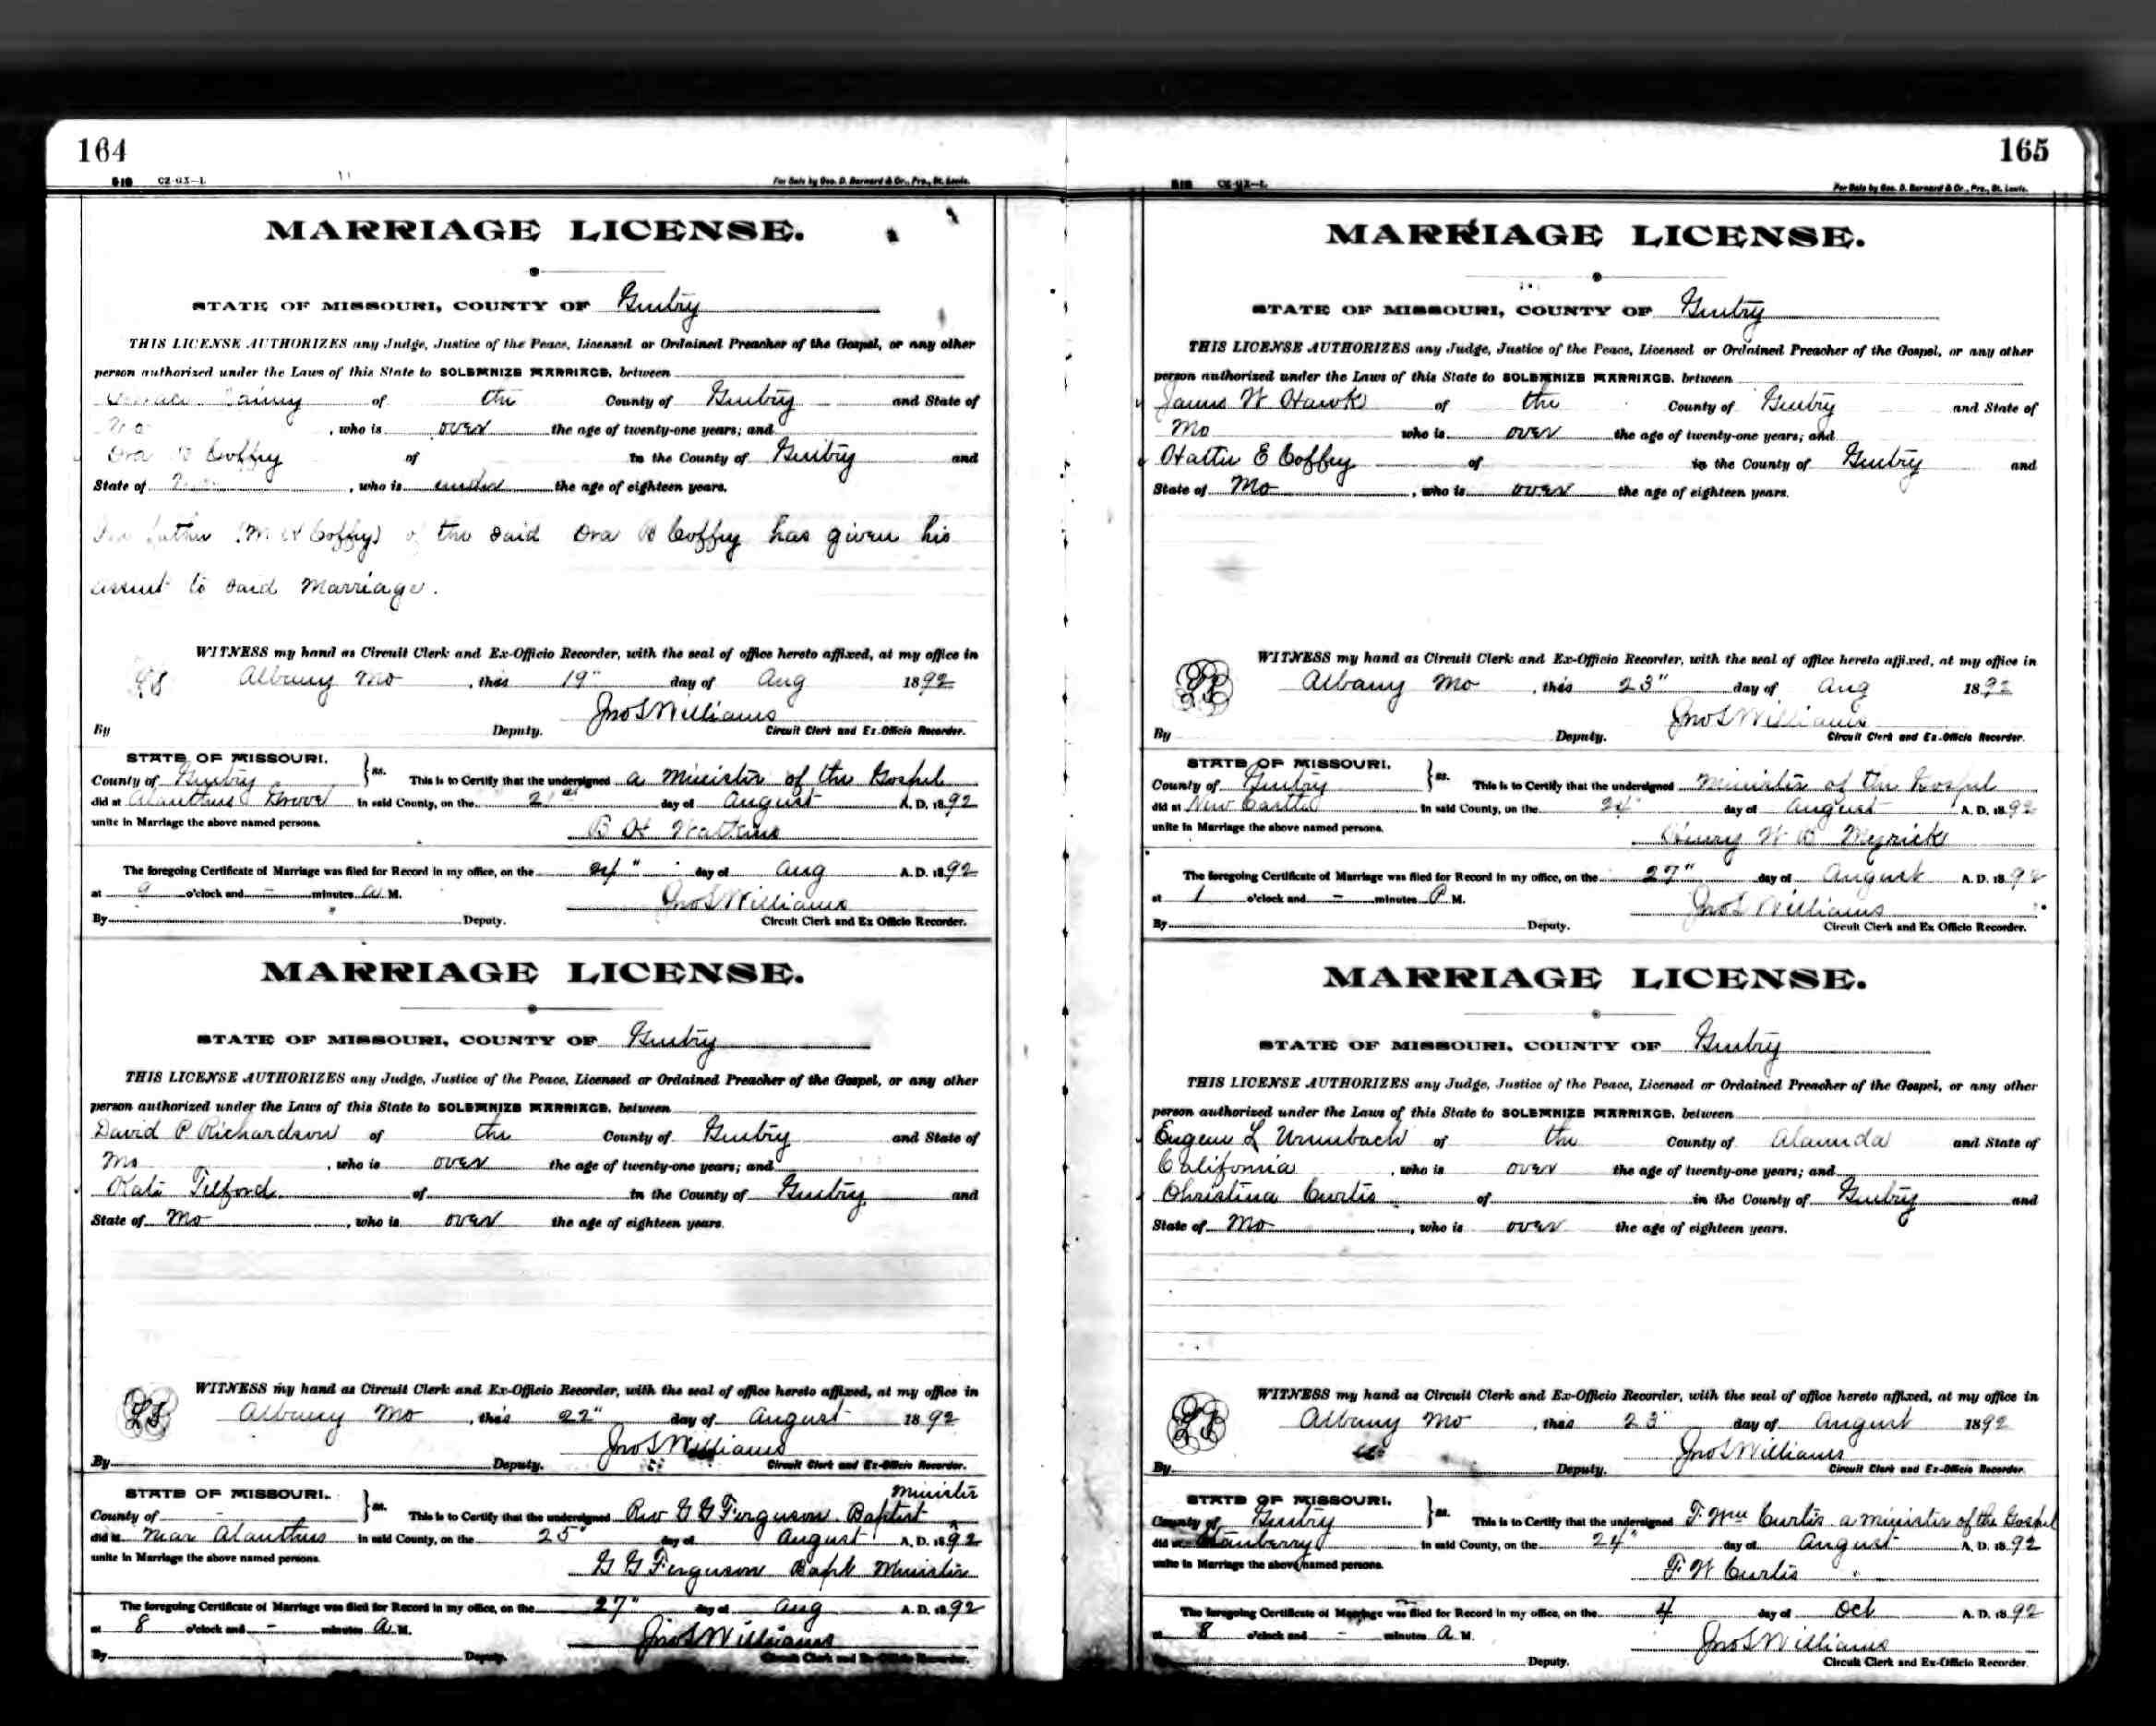 164
518 CZ-GX-1.
For Sale by Geo. D. Barnard & Co., Prs., St. Louis.
MARRIAGE LICENSE.
STATE OF MISSOURI, COUNTY OF Gentry
THIS LICENSE AUTHORIZES any Judge, Justice of the Peace, Licensed or Ordained Preacher of the Gospel, or any other
person authorized under the Laws of this State to SOLEMNIZE MARRIAGE, between
of the County of Gentry and State of
Mo, who is over the age of twenty-one years; and
Ora B Coffey of in the County of Gentry and
State of , who is under the age of eighteen years.
father (M H Coffey) of the said Ora B Coffey has given his
assent to said Marriage.
WITNESS my hand as Circuit Clerk and Ex-Officio Recorder, with the seal of office hereto affixed, at my office in
LS Albany Mo, this 19" day of Aug 1892
Jno S Williams
By Deputy. Circuit Clerk and Ex-Officio Recorder.
STATE OF MISSOURI,
County of Gentry } ss. This is to Certify that the undersigned a Minister of the Gospel
did at Alanthus Grove in said County, on the 21st day of August A. D. 1892
unite in Marriage the above named persons.
B H Watkins
The foregoing Certificate of Marriage was filed for Record in my office, on the 24" day of Aug A. D. 1892
at 9 o'clock and - minutes A M.
Jno S Williams
By Deputy. Circuit Clerk and Ex Officio Recorder.
MARRIAGE LICENSE.
STATE OF MISSOURI, COUNTY OF Gentry
THIS LICENSE AUTHORIZES any Judge, Justice of the Peace, Licensed or Ordained Preacher of the Gospel, or any other
person authorized under the Laws of this State to SOLEMNIZE MARRIAGE, between
David P. Richardson of the County of Gentry and State of
Mo, who is over the age of twenty-one years; and
Kate Telford of in the County of Gentry and
State of Mo, who is over the age of eighteen years.
WITNESS my hand as Circuit Clerk and Ex-Officio Recorder, with the seal of office hereto affixed, at my office in
LS Albany Mo, this 22" day of August 1892
Jno S Williams
By Deputy. Circuit Clerk and Ex-Officio Recorder.
STATE OF MISSOURI, Minister
County of - } ss. This is to Certify that the undersigned Rev G G Ferguson Baptist
did at near Alanthus in said County, on the 25" day of August A. D. 1892
unite in Marriage the above named persons.
G G Ferguson Bapt Minister
The foregoing Certificate of Marriage was filed for Record in my office, on the 27" day of Aug A. D. 1892
at 8 o'clock and - minutes A M.
Jno S Williams
By Deputy. Circuit Clerk and Ex-Officio Recorder.
165
518 CZ-GX-1.
For Sale by Geo. D. Barnard & Co., Prs., St. Louis.
MARRIAGE LICENSE.
STATE OF MISSOURI, COUNTY OF Gentry
THIS LICENSE AUTHORIZES any Judge, Justice of the Peace, Licensed or Ordained Preacher of the Gospel, or any other
person authorized under the Laws of this State to SOLEMNIZE MARRIAGE, between
James W Hawk of the County of Gentry and State of
Mo who is over the age of twenty-one years; and
Hattie E Coffey of in the County of Gentry and
State of Mo, who is over the age of eighteen years.
WITNESS my hand as Circuit Clerk and Ex-Officio Recorder, with the seal of office hereto affixed, at my office in
LS Albany Mo, this 23" day of Aug 1892
Jno S Williams
By Deputy. Circuit Clerk and Ex-Officio Recorder.
STATE OF MISSOURI,
County of Gentry } ss. This is to Certify that the undersigned Minister of the Gospel
did at New Castle in said County, on the 24" day of August A. D. 1892
unite in Marriage the above named persons.
Henry W B Meyrick
The foregoing Certificate of Marriage was filed for Record in my office, on the 27" day of August A. D. 1892
at 1 o'clock and - minutes P M.
Jno S Williams
By Deputy. Circuit Clerk and Ex Officio Recorder.
MARRIAGE LICENSE.
STATE OF MISSOURI, COUNTY OF Gentry
THIS LICENSE AUTHORIZES any Judge, Justice of the Peace, Licensed or Ordained Preacher of the Gospel, or any other
person authorized under the Laws of this State to SOLEMNIZE MARRIAGE, between
Eugene L of the County of Alameda and State of
California, who is over the age of twenty-one years; and
Christina Curtis of in the County of Gentry and
State of Mo, who is over the age of eighteen years.
WITNESS my hand as Circuit Clerk and Ex-Officio Recorder, with the seal of office hereto affixed, at my office in
LS Albany Mo, this 23" day of August 1892
Jno S Williams
By Deputy. Circuit Clerk and Ex-Officio Recorder.
STATE OF MISSOURI,
County of Gentry } ss. This is to Certify that the undersigned F. Wm Curtis a minister of the Gospel
did at Stanberry in said County, on the 24" day of August A. D. 1892
unite in Marriage the above named persons.
F. W Curtis
The foregoing Certificate of Marriage was filed for Record in my office, on the 4 day of Oct A. D. 1892
at 8 o'clock and - minutes A M.
Jno S Williams
Deputy. Circuit Clerk and Ex-Officio Recorder.